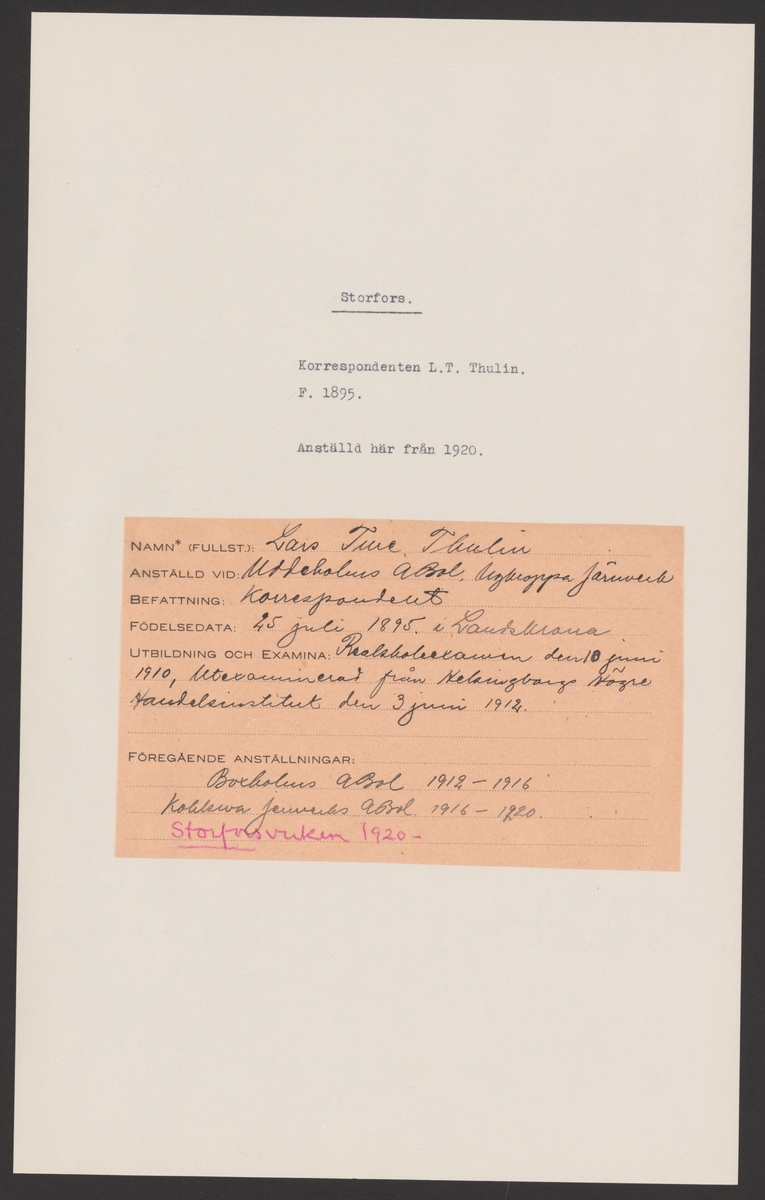 Storfors.
Korrespondenten L.T. Thulin.
F. 1895.
Anställd här från 1920.
NAMN* (FULLST.): Lars Ture Thulin
ANSTÄLLD VID: Uddeholms ABol, Järnverk
BEFATTNING: Korrespondent
FÖDELSEDATA: 25 juli 1895. i Landskrona
UTBILDNING OCH EXAMINA: Realskoleexamen den 10 juni
1910, Utexaminerad från Helsingborgs Högre
Handelsinstitut den 3 juni 1912.
FÖREGÅENDE ANSTÄLLNINGAR:
Boxholms ABol 1912 - 1916
Kohlswa Jernverks ABol 1916 - 1920.
Storforsverken 1920 -